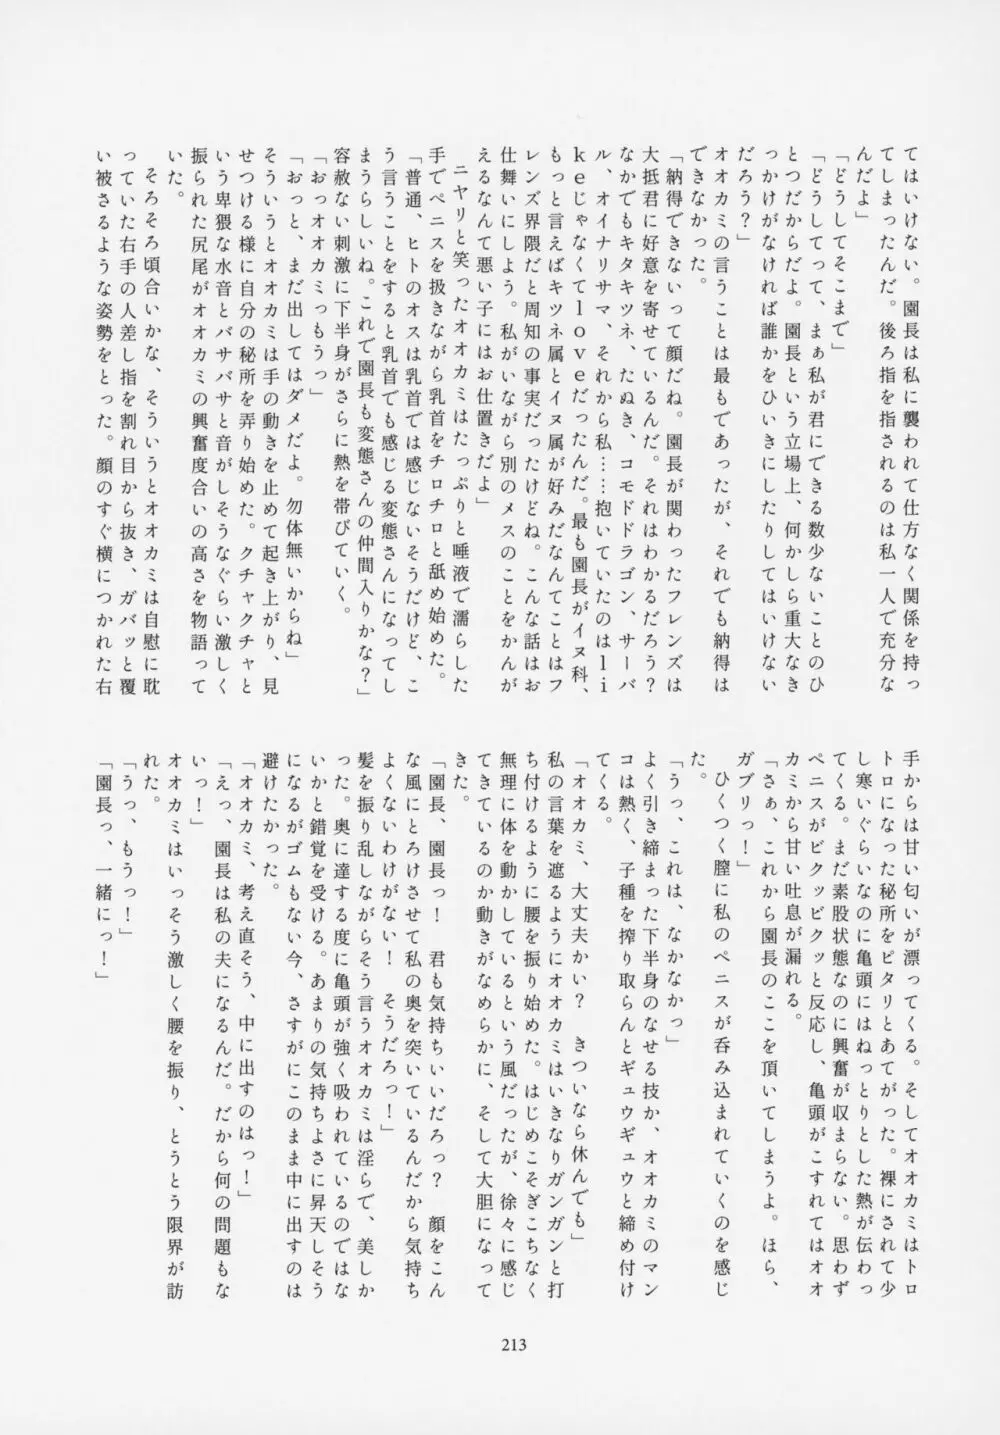 てはいけない。園長は私に襲われて仕方なく関係を持っ
てしまったんだ。後ろ指を指されるのは私一人で充分な
んだよ」
「どうしてそこまで」
「どうしてって、まぁ私が君にできる数少ないことのひ
とつだからだよ。園長という立場上、何かしら重大なき
っかけがなければ誰かをひいきにしたりしてはいけない
だろう？」
オオカミの言うことは最もであったが、それでも納得は
できなかった。
「納得できないって顔だね。園長が関わったフレンズは
大抵君に好意を寄せているんだ。それはわかるだろう？
なかでもキタキツネ、たぬき、コモドドラゴン、サーバ
ル、オイナリサマ、それから私……抱いていたのはli
keじゃなくてloveだったんだ。最も園長がイヌ科、
もっと言えばキツネ属とイヌ属が好みだなんてことはフ
レンズ界隈だと周知の事実だったけどね。こんな話はお
仕舞いにしよう。私がいながら別のメスのことをかんが
えるなんて悪い子にはお仕置きだよ」
ニヤリと笑ったオオカミはたっぷりと唾液で濡らした
手でペニスを扱きながら乳首をチロチロと舐め始めた。
「普通、ヒトのオスは乳首では感じないそうだけど、こ
う言うことをすると乳首でも感じる変態さんになってし
まうらしいね。これで園長も変態さんの仲間入りかな？」
容赦ない刺激に下半身がさらに熱を帯びていく。
「おっオオカミっもうっ」
「おっと、まだ出してはダメだよ。勿体無いからね」
そういうとオオカミは手の動きを止めて起き上がり、見
せつける様に自分の秘所を弄り始めた。クチャクチャと
いう卑猥な水音とバサバサと音がしそうなぐらい激しく
振られた尻尾がオオカミの興奮度合いの高さを物語って
いた。
そろそろ頃合いかな、そういうとオオカミは自慰に耽
っていた右手の人差し指を割れ目から抜き、ガバッと覆
い被さるような姿勢をとった。顔のすぐ横につかれた右
手からは甘い匂いが漂ってくる。そしてオオカミはトロ
トロになった秘所をピタリとあてがった。裸にされて少
し寒いぐらいなのに亀頭にはねっとりとした熱が伝わっ
てくる。まだ素股状態なのに興奮が収まらない。思わず
ペニスがビクッビクッと反応し、亀頭がこすれてはオオ
カミから甘い吐息が漏れる。
「さぁ、これから園長のここを頂いてしまうよ。ほら、
ガブリっ！」
ひくつく膣に私のペニスが呑み込まれていくのを感じ
た。
「うっ、これは、なかなかっ」
よく引き締まった下半身のなせる技か、オオカミのマン
コは熱く、子種を搾り取らんとギュウギュウと締め付け
てくる。
「オオカミ、大丈夫かい？　きついなら休んでも」
私の言葉を遮るようにオオカミはいきなりガンガンと打
ち付けるように腰を振り始めた。はじめこそぎこちなく
無理に体を動かしているという風だったが、徐々に感じ
てきているのか動きがなめらかに、そして大胆になって
きた。
「園長、園長っ！　君も気持ちいいだろっ？　顔をこん
な風にとろけさせて私の奥を突いているんだから気持ち
よくないわけがない！　そうだろっ！」
髪を振り乱しながらそう言うオオカミは淫らで、美しか
った。奥に達する度に亀頭が強く吸われているのではな
いかと錯覚を受ける。あまりの気持ちよさに昇天しそう
になるがゴムもない今、さすがにこのまま中に出すのは
避けたかった。
「オオカミ、考え直そう、中に出すのはっ！」
「えっ、園長は私の夫になるんだ。だから何の問題もな
いっ！」
オオカミはいっそう激しく腰を振り、とうとう限界が訪
れた。
「うっ、もうっ！」
「園長っ、一緒にっ！」
213